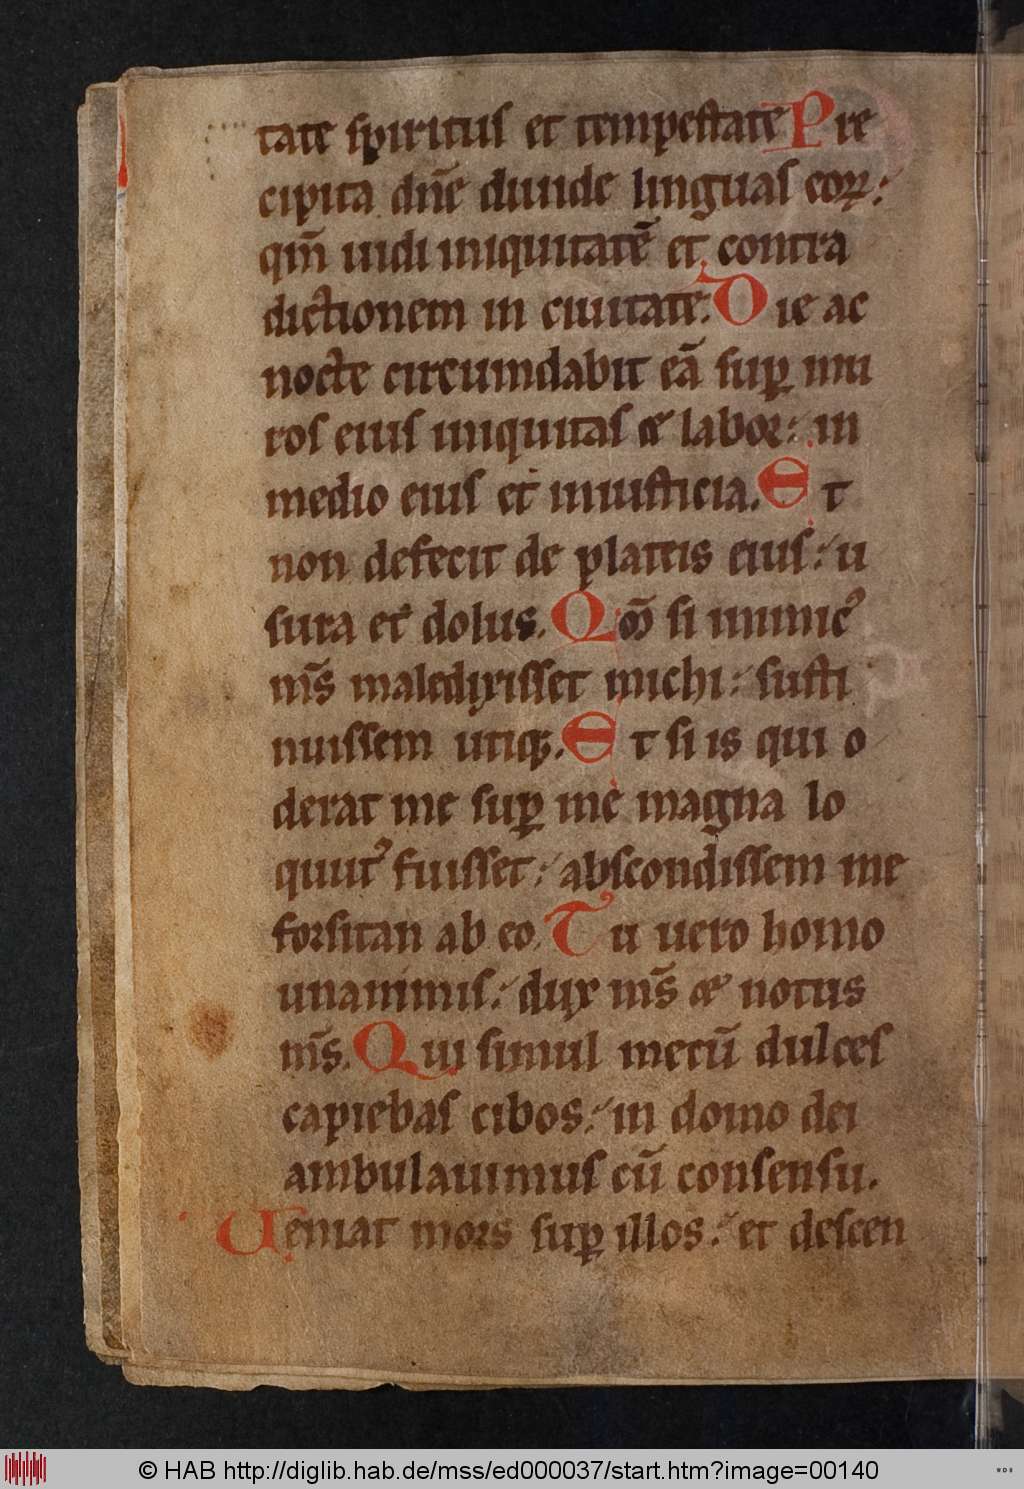 tate spiritus et tempestate Pre
cipita dn̄e diuide linguas eoꝝ:
qm̄ uidi iniquitatē et contra
dictionem in ciuitate. Die ac
nocte circumdabit eā suꝑ mu
ros eius iniquitas et labor: in
medio eius et iniusticia. Et
non defecit de plateis eius: u
sura et dolus. Qm̄ si inimicꝰ
m̄s maledixisset michi: susti
nuissem utiqꝫ. Et si is qui o
derat me suꝑ me magna lo
quutꝰ fuisset: abscondissem me
forsitan ab eo. Tu uero homo
unanimis: dux m̄s et notus
m̄s. Qui simul mecū dulces
capiebas cibos: in domo dei
ambulauimus cū consensu.
Ueniat mors suꝑ illos: et descen
© HAB http://diglib.hab.de/mss/ed000037/start.htm?image=00140